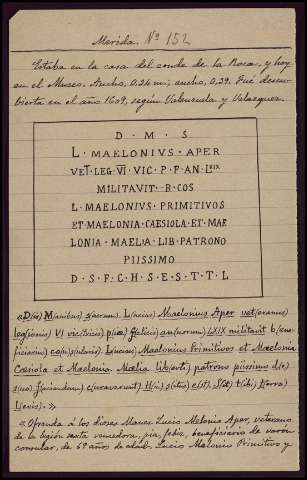 Merida. Nº 152
Estaba en la casa del conde de la Roca, y hoy
en el Museo. Ancho, 0,24 m; ancho, 0,29. Fué descu-
bierta en el año 1609, según Valenzuela y Velazquez.
D · M · S
L · MAELONIVS · APER
VET · LEG · VI · VIC · P · F · AN · LXIX
MILITAVIT · B · COS
L · MAELONIVS · PRIMITIVOS
ET · MAELONIA · CAESIOLA · ET · MAE
LONIA · MAELIA · LIB · PATRONO
PIISSIMO
D · S · F · C · H · S · E · S · T · T · L
«D(iis) M(anibus) s(acrum). L(ucius) Maelonius Aper vet(eranus)
leg(ionis) VI vic(tricis) p(iae) f(elicis) an(norum) LXIX militavit b(ene-
ficiarius) co(n)s(ularis). L(ucius) Maelonius Primitivos et Maelonia
Caesiola et Maelonia Maelia lib(erti) patrono piissimo d(e)
s(uo) f(aciendum) c(uraverunt). H(ic) s(itus) e(st). S(it) t(ibi) t(erra)
l(evis). »
«Ofrenda á los dioses Manes. Lucio Melonio Aper, veterano
de la legión sexta vencedora, pia, feliz, beneficiario de varón
consular, de 69 años de edad. Lucio Melonio Primitivo y